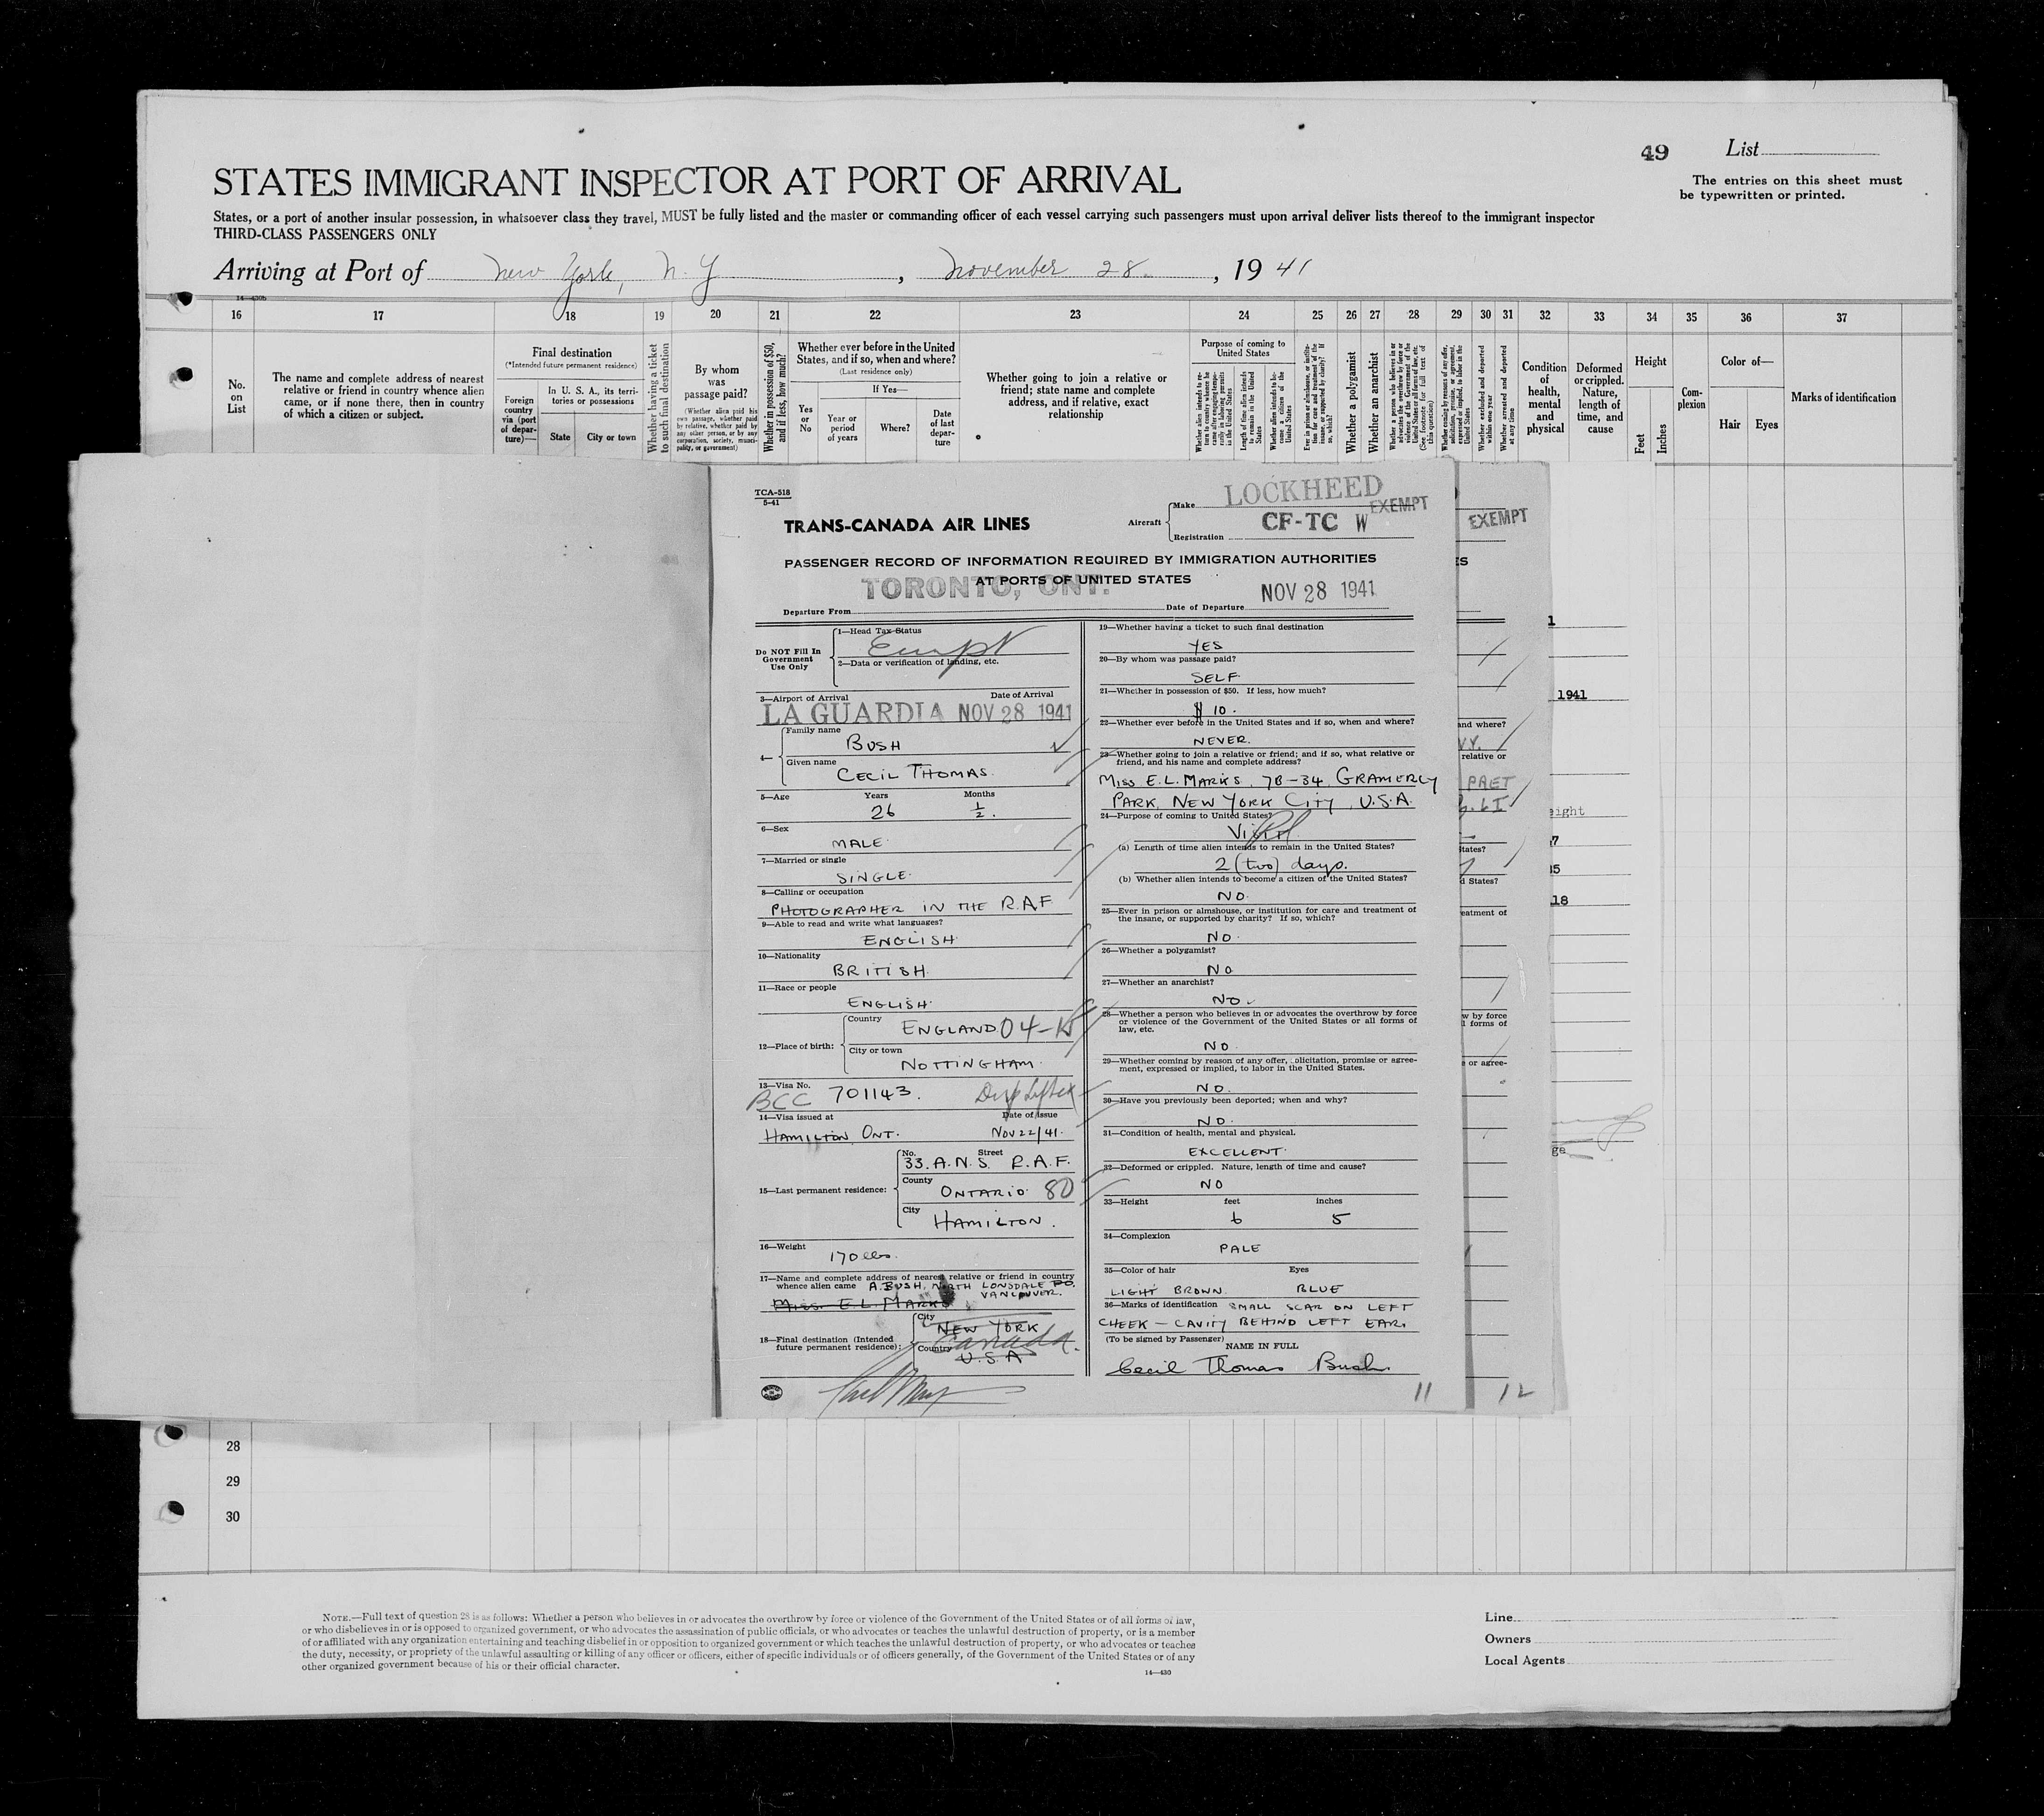 49 List
STATES IMMIGRANT INSPECTOR AT PORT OF ARRIVAL
The entries on this sheet must
be typewritten or printed.
States, or a port of another insular possession, in whatsoever class they travel, MUST be fully listed and the master or commanding officer of each vessel carrying such passengers must upon arrival deliver lists thereof to the immigrant inspector
THIRD-CLASS PASSENGERS ONLY
Arriving at Port of New York, N.Y , November 28 , 1941
14—430b
16 17 18 19 20 21 22 23 24 25 26 27 28 29 30 31 32 33 34 35 36 37
No.
on
List
The name and complete address of nearest
relative or friend in country whence alien
came, or if none there, then in country
of which a citizen or subject.
Final destination
(*Intended future permanent residence)
Foreign
country
via (port
of depar-
ture)—
In U. S. A., its terri-
tories or possessions
State City or town
Whether having a ticket
to such final destination
By whom
was
passage paid?
(Whether alien paid his
own passage, whether paid
by relative, whether paid by
any other person, or by any
corporation, society, munici-
pality, or government)
Whether in possession of $50,
and if less, how much?
Whether ever before in the United
States, and if so, when and where?
(Last residence only)
Yes
or
No
If Yes—
Year or
period
of years
Where?
Date
of last
depar-
ture
Whether going to join a relative or
friend; state name and complete
address, and if relative, exact
relationship
Purpose of coming to
United States
Length of time alien intends
to remain in the United
States
Whether alien intends to be-
come a citizen of the
United States
Whether a polygamist
Whether an anarchist
Whether excluded and deported
within one year
Whether arrested and deported
at any time
Condition
of
health,
mental
and
physical
Deformed
or crippled.
Nature,
length of
time, and
cause
Height
Feet
Inches
Com-
plexion
Color of—
Hair Eyes
Marks of identification
TCA-518
5-41
TRANS-CANADA AIR LINES
Aircraft
Make LOCKHEED
EXEMPT
Registration CF-TC W
PASSENGER RECORD OF INFORMATION REQUIRED BY IMMIGRATION AUTHORITIES
AT PORTS OF UNITED STATES
Departure From TORONTO, ONT.
Date of Departure NOV 28 1941
Do NOT Fill In
Government
Use Only
1—Head Tax Status
2—Data or verification of landing, etc.
3—Airport of Arrival Date of Arrival
LA GUARDIA NOV 28 1941
4—
Family name
BUSH
Given name
CECIL THOMAS.
5—Age Years Months
26 1/2.
6—Sex
MALE.
7—Married or single
SINGLE.
8—Calling or occupation
PHOTOGRAPHER IN THE R.A.F
9—Able to read and write what languages?
ENGLISH
10—Nationality
BRITISH.
11—Race or people
ENGLISH.
12—Place of birth:
Country
ENGLAND 04-
City or town
NOTTINGHAM.
13—Visa No.
BCC 701143.
14—Visa issued at Date of issue
HAMILTON, ONT. NOV 22/41.
15—Last permanent residence:
No. Street
33. A.N.S. R.A.F.
County
ONTARIO. 80
City
HAMILTON.
16—Weight
170 lbs.
17—Name and complete address of nearest relative or friend in country
whence alien came A. BUSH, NORTH LONSDALE PO.
VANCOUVER.
MISS. E.L. MARKS
18—Final destination (Intended
future permanent residence):
City
NEW YORK
Canada.
Country
U.S.A
19—Whether having a ticket to such final destination
YES
20—By whom was passage paid?
SELF
21—Whether in possession of $50. If less, how much?
$ 10.
22—Whether ever before in the United States and if so, when and where?
NEVER.
23—Whether going to join a relative or friend; and if so, what relative or
friend, and his name and complete address?
MISS E.L. MARKS, 7B-34, GRAMERCY
PARK, NEW YORK CITY, U.S.A.
24—Purpose of coming to United States?
Visit
(a) Length of time alien intends to remain in the United States?
2 (two) days.
(b) Whether alien intends to become a citizen of the United States?
NO.
25—Ever in prison or almshouse, or institution for care and treatment of
the insane, or supported by charity? If so, which?
NO.
26—Whether a polygamist?
NO
27—Whether an anarchist?
NO.
28—Whether a person who believes in or advocates the overthrow by force
or violence of the Government of the United States or all forms of
law, etc.
NO.
29—Whether coming by reason of any offer, solicitation, promise or agree-
ment, expressed or implied, to labor in the United States.
NO.
30—Have you previously been deported; when and why?
NO.
31—Condition of health, mental and physical.
EXCELLENT.
32—Deformed or crippled. Nature, length of time and cause?
NO
33—Height feet inches
6 5
34—Complexion
PALE
35—Color of hair Eyes
LIGHT BROWN. BLUE
36—Marks of identification SMALL SCAR ON LEFT
CHEEK — CAVITY BEHIND LEFT EAR.
(To be signed by Passenger)
NAME IN FULL
Cecil Thomas Bush
11
EXEMPT
and where?
relative or
states?
d States?
eatment of
w by force
l forms of
e or agree-
12
1941
eight
28
29
30
NOTE.—Full text of question 28 is as follows: Whether a person who believes in or advocates the overthrow by force or violence of the Government of the United States or of all forms of law,
or who disbelieves in or is opposed to organized government, or who advocates the assassination of public officials, or who advocates or teaches the unlawful destruction of property, or is a member
of or affiliated with any organization entertaining and teaching disbelief in or opposition to organized government or which teaches the unlawful destruction of property, or who advocates or teaches
the duty, necessity, or propriety of the unlawful assaulting or killing of any officer or officers, either of specific individuals or of officers generally, of the Government of the United States or of any
other organized government because of his or their official character.
14—430
Line
Owners
Local Agents